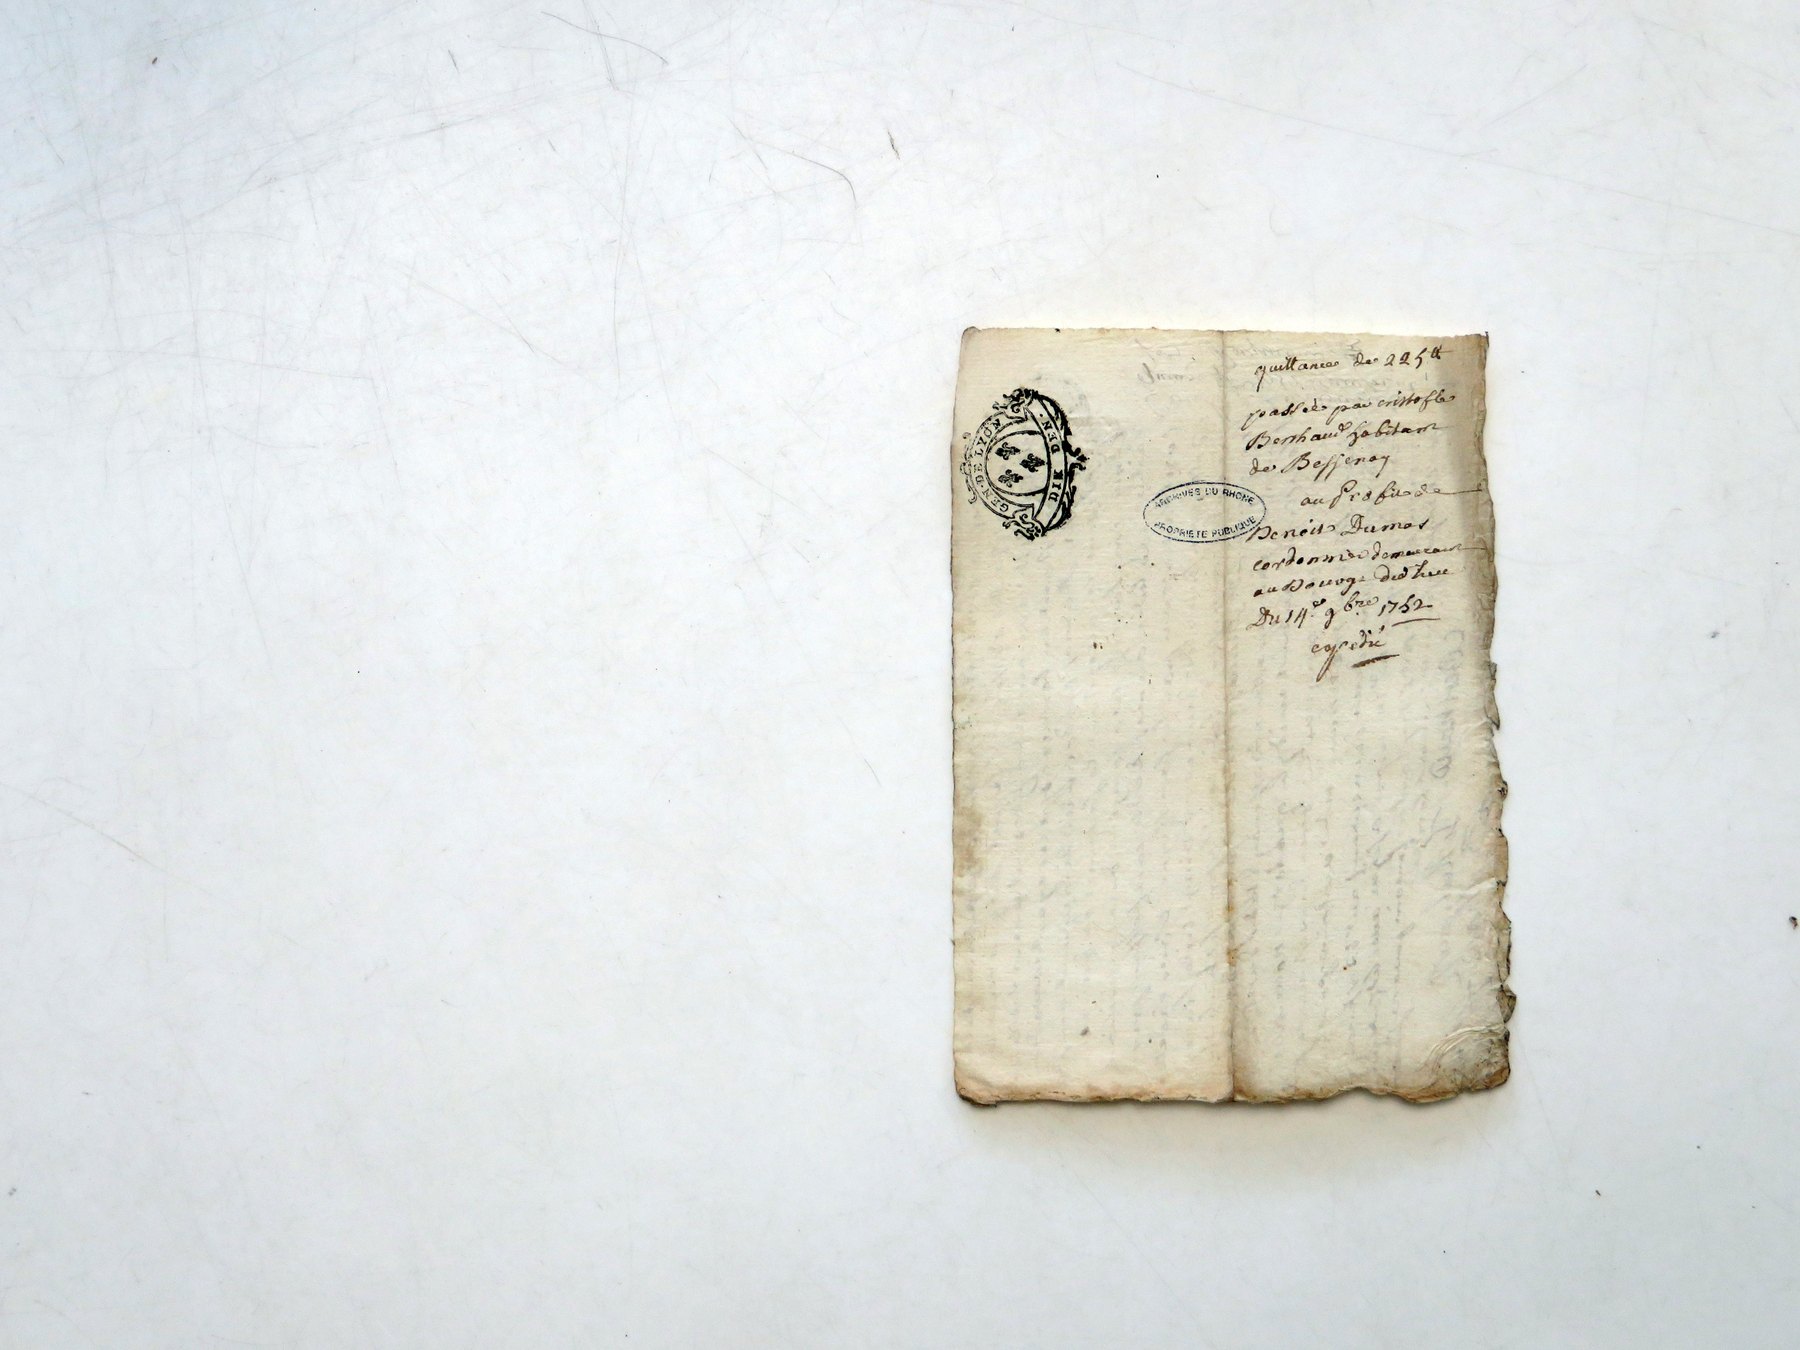 GEN·DE LYON
DIX DEN·
ARCHIVES DU RHONE
PROPRIETE PUBLIQUE
quittance de 225₶
passée par cristofle
Berthaud habitant
de Bessenay
au Profit de
Benoit Dumas
cordonnier demeurant
au Bourg dud lieu
Du 14e 9bre 1752
expedié